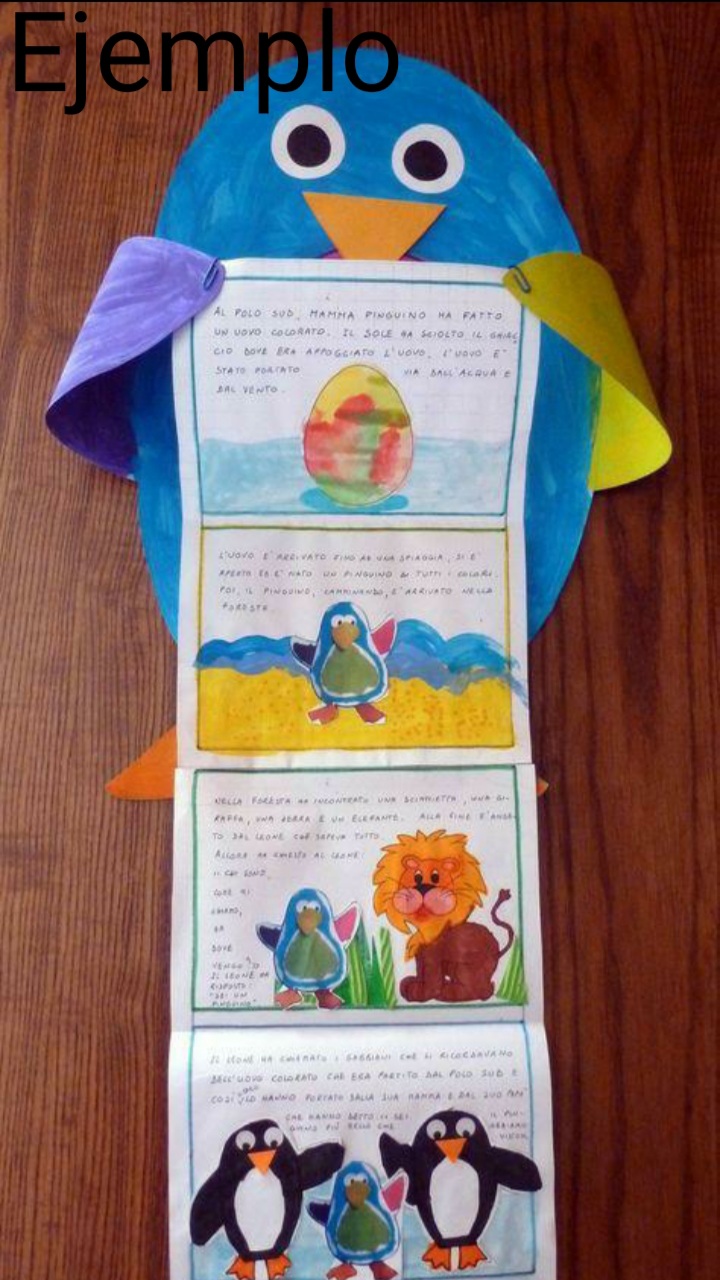 Ejemplo
AL POLO SUD, MAMMA PINGUINO HA FATTO
UN UOVO COLORATO. IL SOLE HA SCIOLTO IL GHIAC
CIO DOVE ERA APPOGGIATO L'UOVO. L'UOVO E'
STATO PORTATO VIA DALL'ACQUA E
DAL VENTO.
L'UOVO E' ARRIVATO FINO AD UNA SPIAGGIA, SI E'
APERTO ED E' NATO UN PINGUINO DI TUTTI I COLORI.
POI, IL PINGUINO, CAMMINANDO, E' ARRIVATO NELLA
FORESTA.
NELLA FORESTA HA INCONTRATO UNA SCIMMIETTA, UNA GI-
RAFFA, UNA ZEBRA E UN ELEFANTE. ALLA FINE E' ANDA-
TO DAL LEONE CHE SAPEVA TUTTO.
ALLORA HA CHIESTO AL LEONE:
CHI SONO,
COME MI
CHIAMO,
DA
DOVE
VENGO
IL LEONE HA
RISPOSTO:
"SEI UN
PINGUINO"
IL LEONE HA CHIAMATO I GABBIANI CHE SI RICORDAVANO
DELL'UOVO COLORATO CHE ERA PARTITO DAL POLO SUD E
COSÌ LO HANNO PORTATO DALLA SUA MAMMA E DAL SUO PAPA'
CHE HANNO DETTO SEI IL PIN-
GUINO PIÙ BELLO CHE ABBIAMO